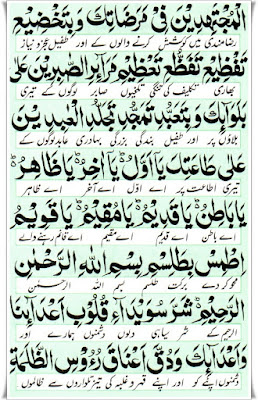 الْمُجْتَهِدِيْنَ فِيْ مَرْضَاتِكَ وَبِتَخْضِيْعِ
رضامندی میں کوشش کرنے والوں کے اور طفیل عجز و نیاز
تَفْظِيْعِ تَقَطُّعِ تَعْظِيْمِ مَرَآئِرِ الصَّابِرِيْنَ عَلٰى
بھاری تکلیف کی تنگی تلخیوں صابر لوگوں کے تیری
بَلْوَآئِكَ وَبِتَعَبُّدِ تَمَجُّدِ تَجَلُّدِ الْعٰبِدِيْنَ
بلاؤں پر اور طفیل بندگی بزرگی بہادری عابد لوگوں کے
عَلٰى طَاعَتِكَ يَآ اَوَّلُ يَآ اٰخِرُ يَا ظَاهِرُ
تیری اطاعت پر اے اوّل اے آخر اے ظاہر
يَا بَاطِنُ يَا قَدِيْمُ يَا مُقِيْمُ يَا قَوِيْمُ
اے باطن اے قدیم اے مقیم اے قائم رہنے والے
اِطْمِسْ بِطِلَسْمِ بِسْمِ اللهِ الرَّحْمٰنِ
محو کر دے برکت طلسم بسم اللہ الرحمٰن
الرَّحِيْمِ شَرَّ سُوَيْدَآءِ قُلُوْبِ اَعْدَآئِنَا
الرحیم کے شر سیاہی دلوں دشمنوں ہمارے اور
وَاَعْدَآئِكَ وَدُقَّ اَعْنَاقَ رُءُوْسِ الظَّلَمَةِ
دشمنوں اپنے کو اور اپنے قہر و غلبہ کی تیز تلواروں سے ظالموں